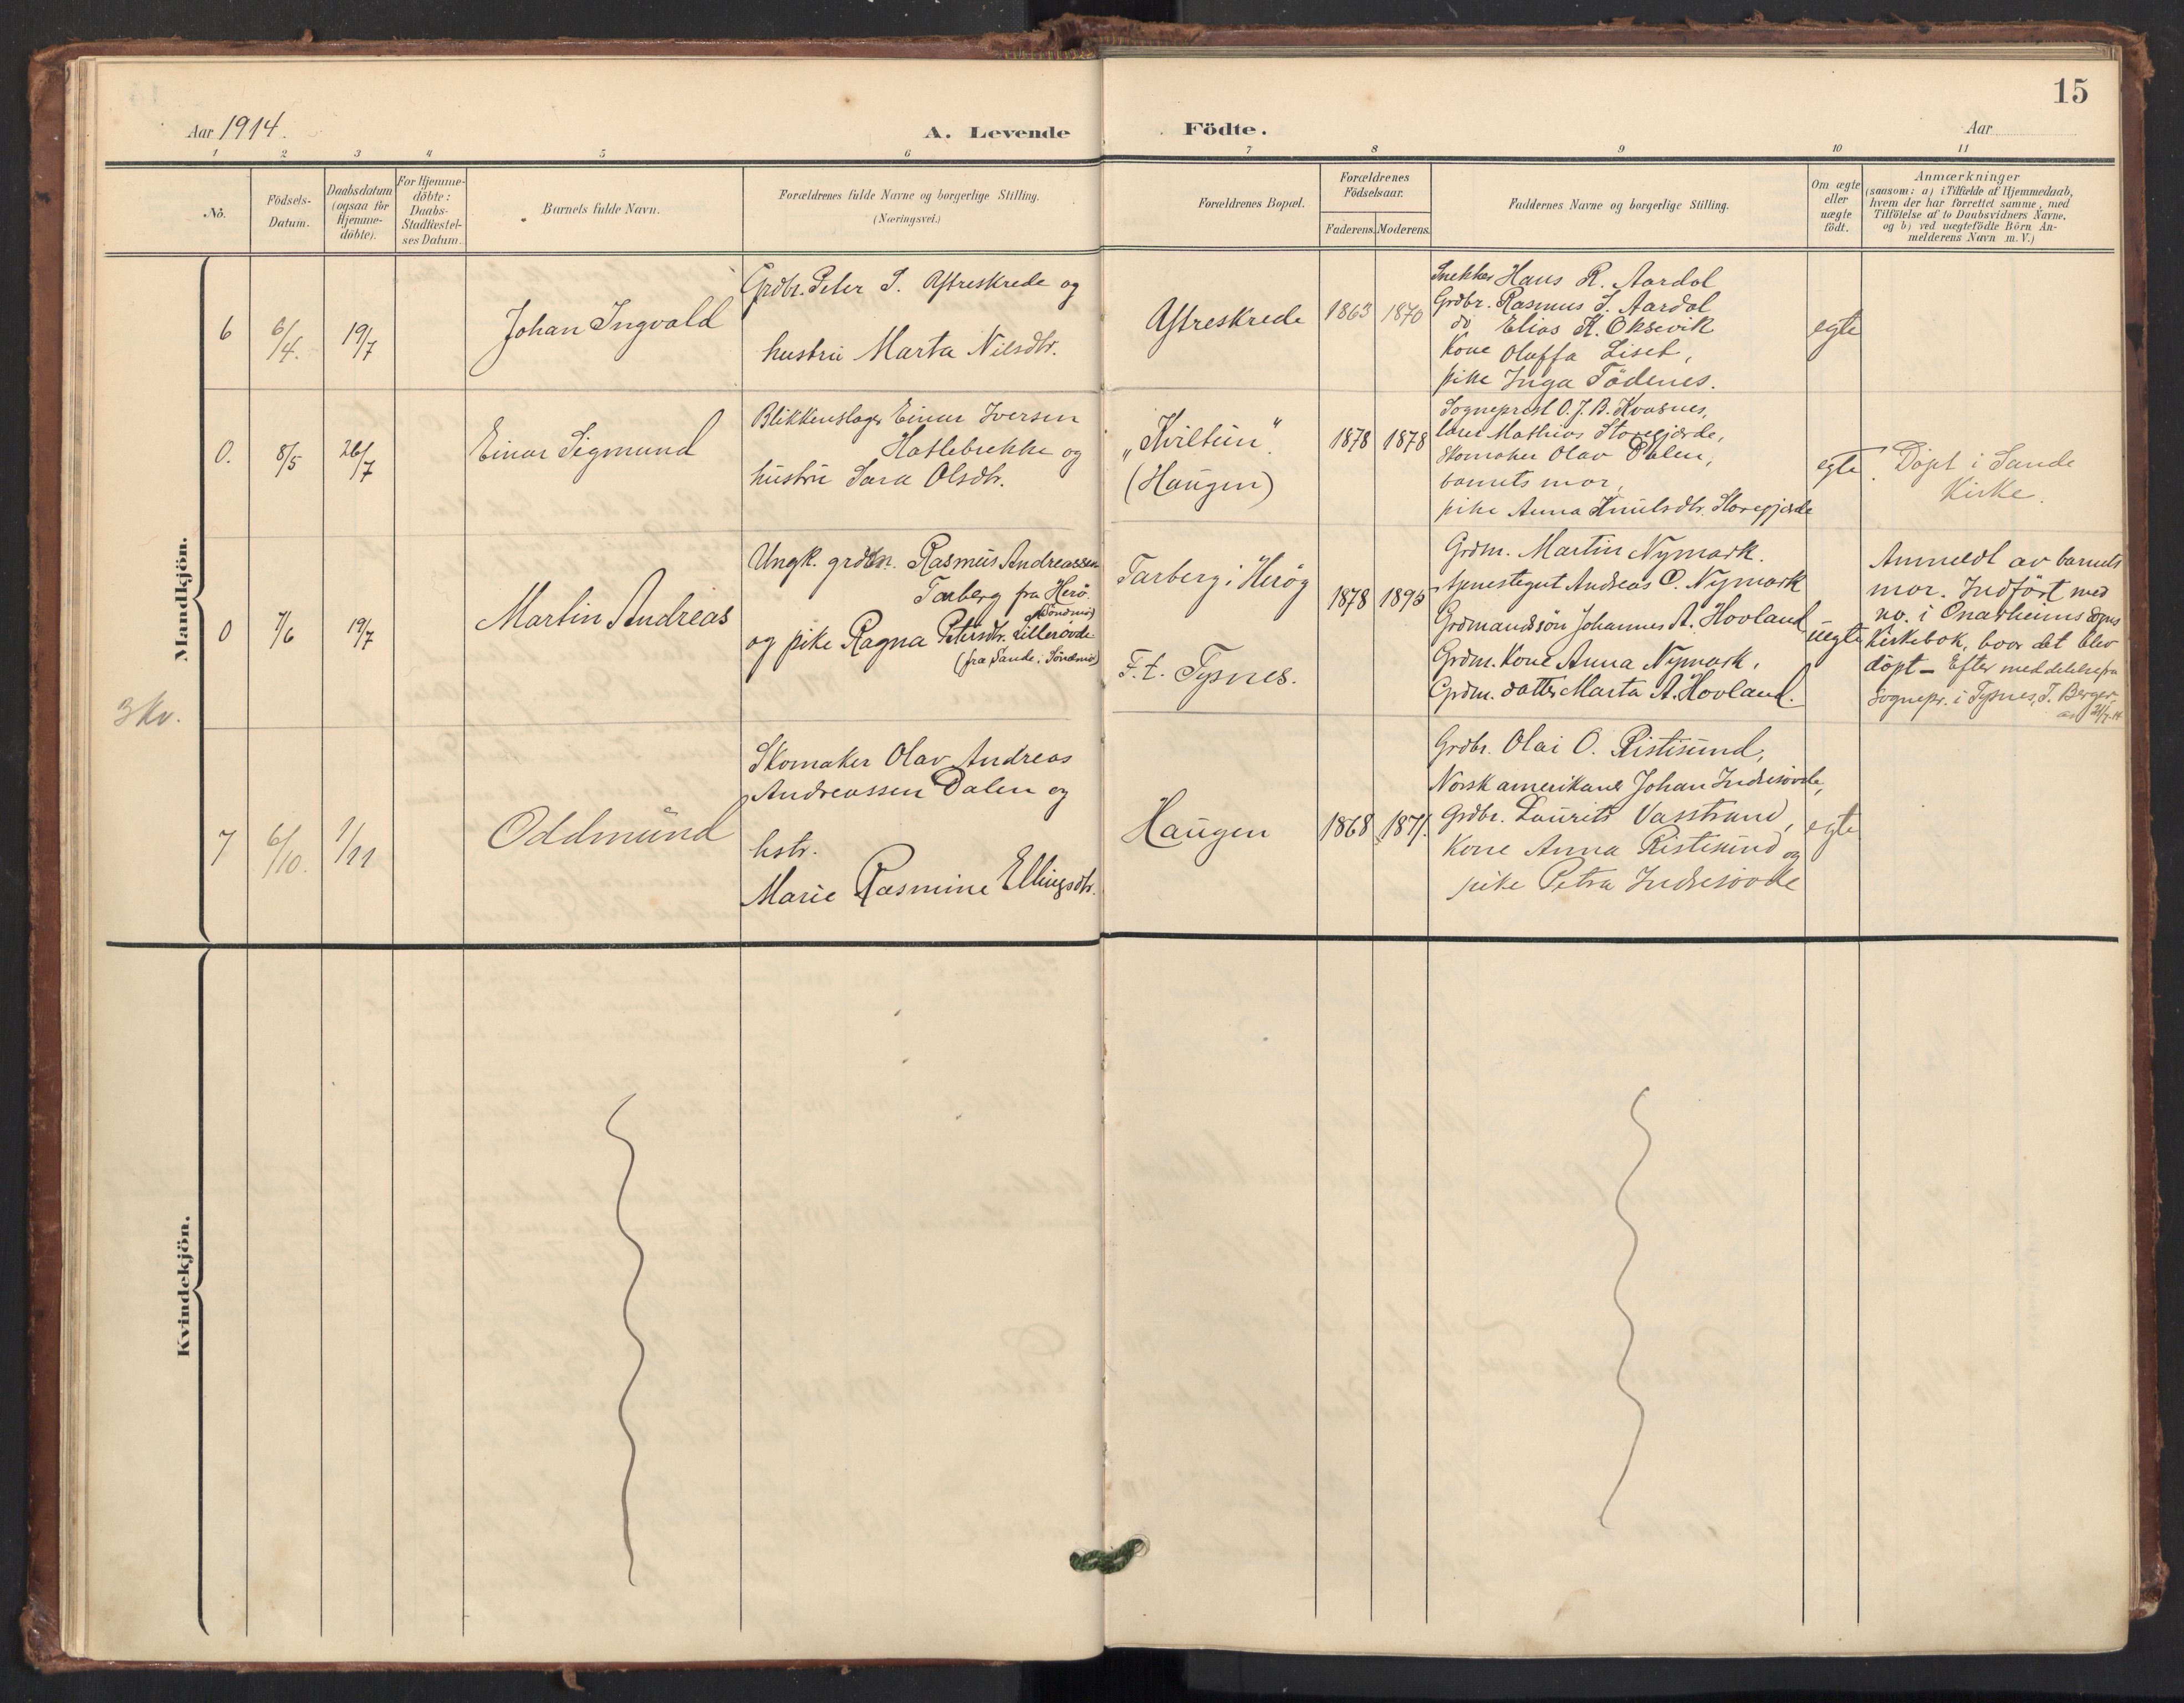 15
Aar 1914.
A. Levende Födte.
Aar
1 2 3 4 5 6 7 8 9 10 11
No.
Födsels-
Datum.
Daabsdatum
(ogsaa for
Hjemme-
döbte).
For Hjemme-
döbte:
Daabs-
Stadfæstel-
ses Datum.
Barnets fulde Navn.
Forældrenes fulde Navne og borgerlige Stilling.
(Næringsvei.)
Forældrenes Bopæl.
Forældrenes
Födselsaar.
Faderens. Moderens.
Faddernes Navne og borgerlige Stilling.
Om ægte
eller
uægte
födt.
Anmærkninger
(saasom: a) i Tilfælde af Hjemmedaab,
hvem der har forrettet samme, med
Tilföielse af to Daabsvidners Navne.
og b) ved uægtefödte Börn An-
melderens Navn m. V.)
Mandkjön.
6
6/4.
19/7
Johan Ingvald
Grdbr. Peter S. Aftreskrede og
hustru Marta Nilsdtr.
Aftreskrede
1863
1870
Snekker Hans R. Aardal
Grdbr. Rasmus S. Aardal
do Elias K. Oksevik
Kone Oluffa Liset,
pike Inga Tödenes.
egte
0.
8/5
26/7
Einar Sigmund
Blikkenslager Einar Iversen
Hatlebrekke og
hustru Sara Olsdtr.
„Kviltun".
(Haugen)
1878
1878
Sogneprest O. J. B. Kvasnes,
lærer Mathias Storegjærde,
Skomaker Olav Dalen,
barnets mor,
pike Anna Knutsdtr. Storegjærde
egte.
Döpt i Sande
Kirke.
0
7/6
19/7
Martin Andreas
Ungk. grdbr. Rasmus Andreassen
Tarberg fra Herö.
Söndmör
og pike Ragna Petersdtr. Lillesövde
(fra Sande i Söndmör)
Tarberg i Heröy
F. t. Tysnes.
1878
1895
Grdm. Martin Nymark.
tjenestegut Andreas O. Nymark
Grdmandssön Johannes A. Hovland
Grdm. Kone Anna Nymark,
Grdm. datter Marta A. Hovland.
uegte
Anmeldt av barnets
mor. Indfört med
no. i Onarheims sogns
Kirkebok, hvor det blev
döpt – Efter meddelelse fra
Sognepr. i Tysnes, T. Berger
av 21/7.14
3 kv.
7
6/10.
1/11
Oddmund
Skomaker Olav Andreas
Andreassen Dalen og
hstr.
Marie Rasmine Ellingsdtr.
Haugen
1868
1871.
Grdbr. Olai O. Ristesund,
Norskamerikaner Johan Indresövde,
Grdbr. Laurits Vasstrand,
Kone Anna Ristesund og
pike Petra Indresövde
egte
Kvindekjön.